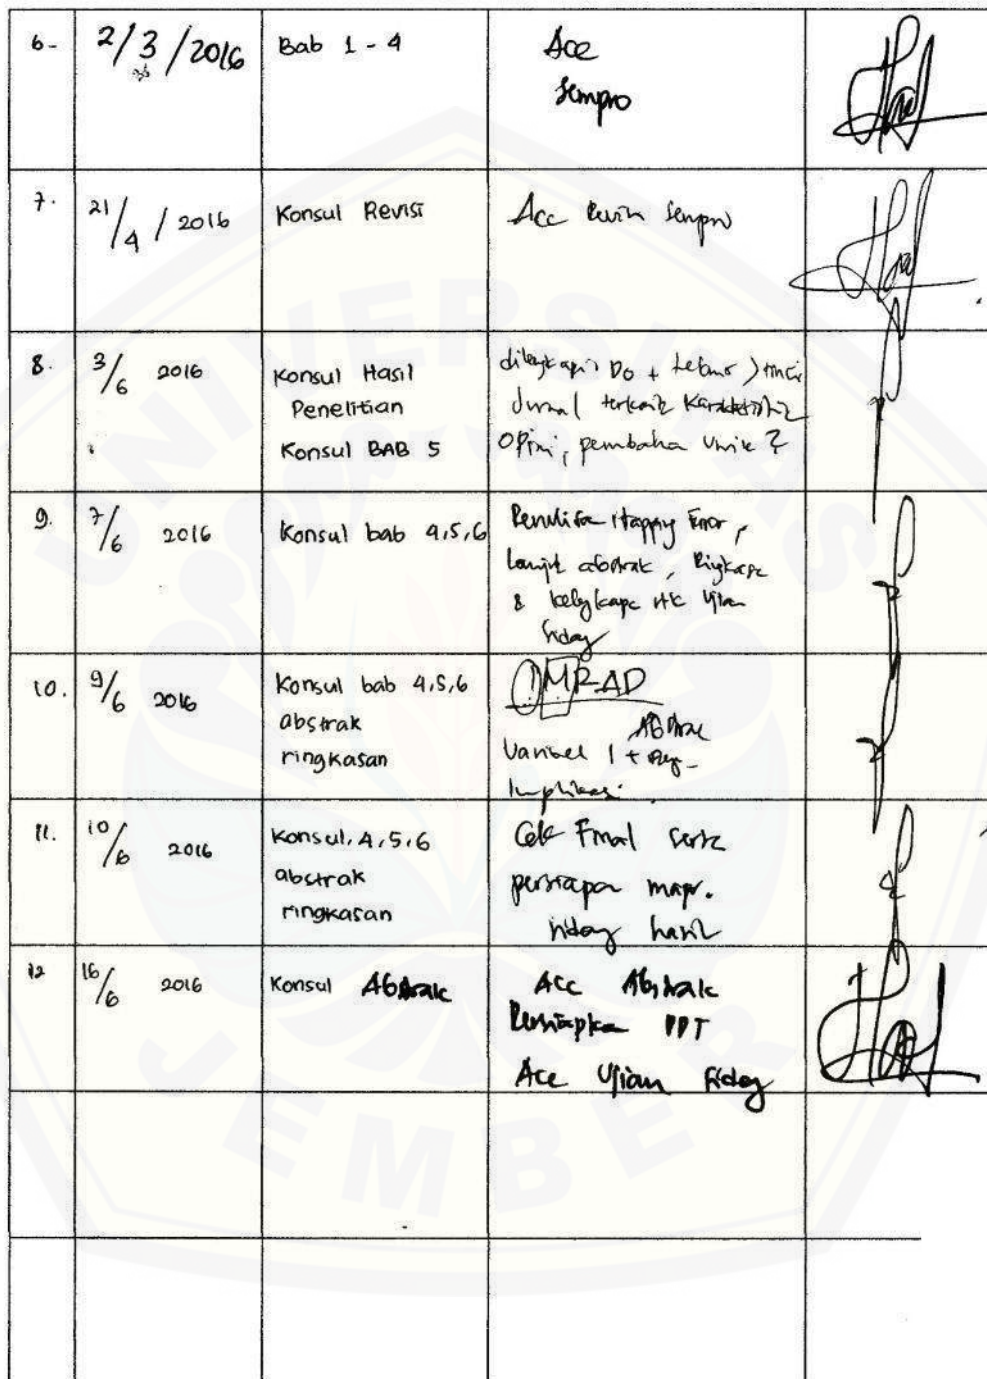 6- 2/3/2016 Bab 1 - 4 Acc
Sempro
7. 21/4/2016 Konsul Revisi Acc Revisi Sempro
8. 3/6 2016 Konsul Hasil
Penelitian
Konsul BAB 5
dilengkapi DO +
Jurnal terkait Karakteristik
Opini, pembaha Unik ?
9. 7/6 2016 Konsul bab 4,5,6
Lanjut abstrak, Ringkasa
&
Sidang
10. 9/6 2016 Konsul bab 4,5,6
abstrak
ringkasan
IMRAD
Abstrak
Variabel 1 +
Implikasi
11. 10/6 2016 Konsul. 4,5,6
abstrak
ringkasan
Cek Final serta
persiapan
sidang hasil
12 16/6 2016 Konsul Abstrak
Acc Abstrak
Persiapka PPT
Acc Ujian Sidang
UNIVERSITAS
JEMBER